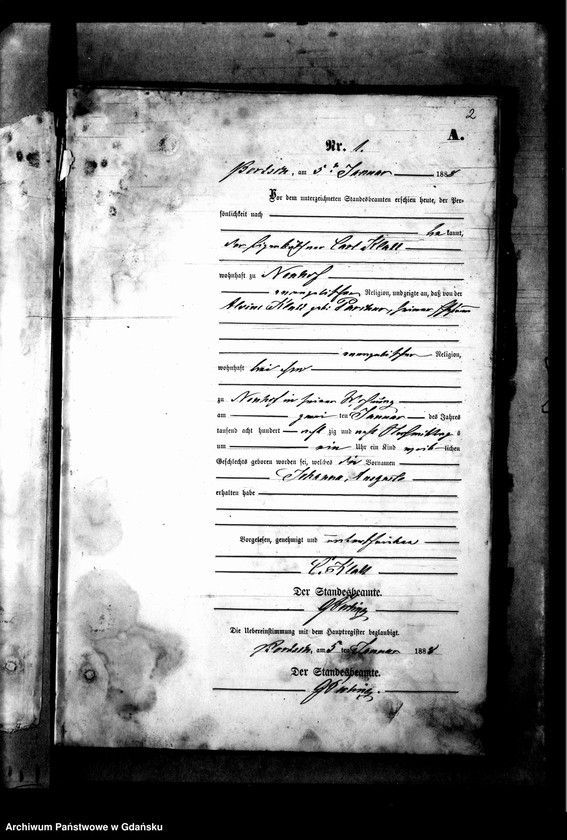 2
A.
Nr. 1.
am 5ten Januar 1888
Vor dem unterzeichneten Standesbeamten erschien heute, der Per-
sönlichkeit nach
be kannt,
der Eigenkäthner Carl Klatt
wohnhaft zu
evangelischer Religion, und zeigte an, daß von der
Alvine Klatt geb. seiner Ehefrau
evangelischer Religion,
wohnhaft bei ihm
zu in seiner Wohnung
am zwei ten Januar des Jahres
tausend acht hundert acht zig und acht Nachmittags
um ein Uhr ein Kind weib lichen
Geschlechts geboren worden sei, welches die Vornamen
Johanna, Auguste
erhalten habe
Vorgelesen, genehmigt und unterschrieben
C. Klatt
Der Standesbeamte.
Die Uebereinstimmung mit dem Hauptregister beglaubigt.
am 5 ten Januar 1888
Der Standesbeamte.
Archiwum Państwowe w Gdańsku